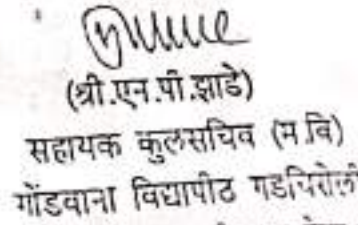 (श्री.एन.पी.झाडे)
सहायक कुलसचिव (म.वि)
गोंडवाना विद्यापीठ गडचिरोली